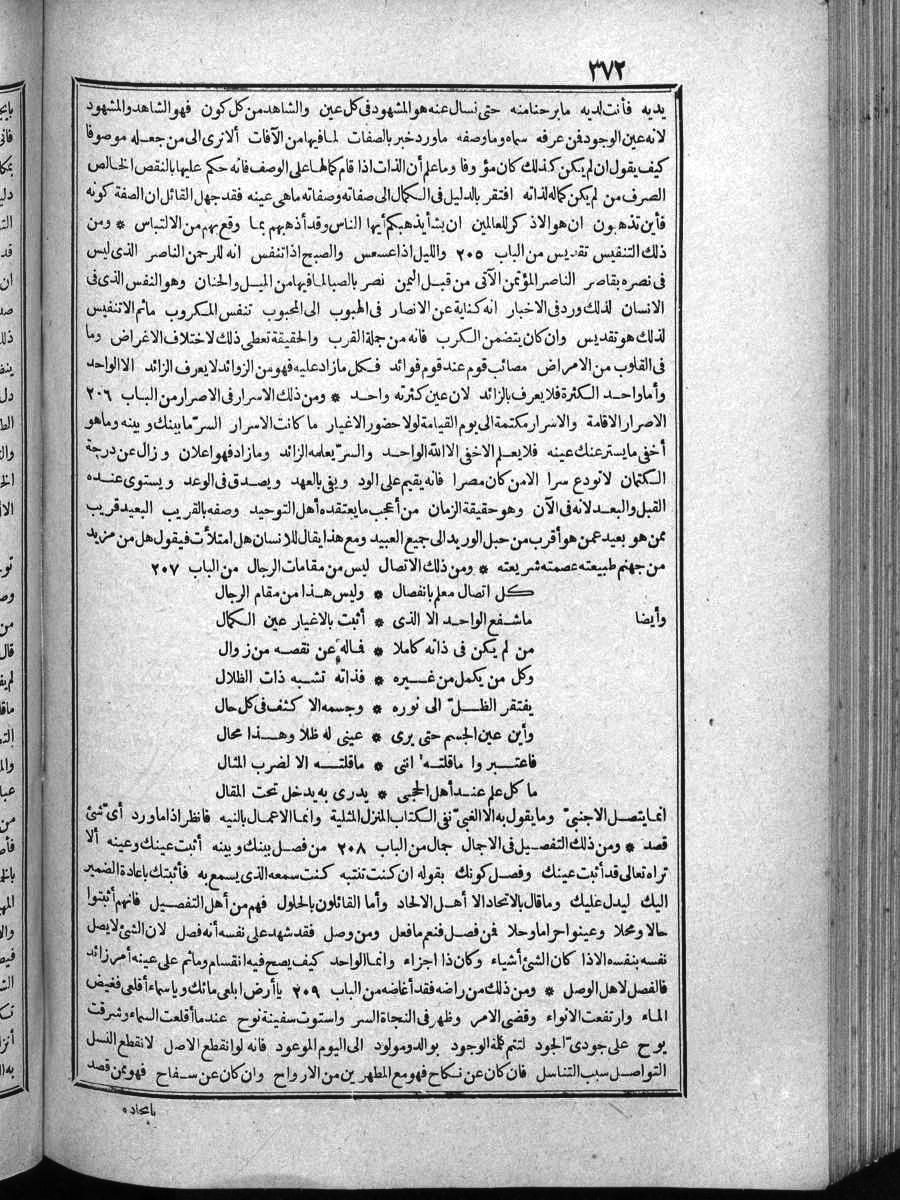 ٣٧٢
يديه فأنت لديه مابرحنا منه حتى نسأل عنه هو المشهود فى كل عين والشاهد من كل كون فهو الشاهد والمشهود
لانه عين الوجود فمن عرفه سماه وما وصفه ماورد خبر بالصفات لما فيها من الآفات ألا ترى الى من جعله موصوفا
كيف يقول ان لم يكن كذلك كان مؤوفا وما علم أن الذات اذا قام كمالها على الوصف فانه حكم عليها بالنقص الخالص
الصرف من لم يكن كماله لذاته افتقر بالدليل فى الكمال الى صفاته وصفاته ماهى عينه فقد جهل القائل ان الصفة كونه
فأين تذهبون ان هو الا ذكر للعالمين ان يشأ يذهبكم أيها الناس وقد أذهبهم بما وقع بهم من الالتباس * ومن
ذلك التنفيس تقديس من الباب ٢٠٥ والليل اذا عسعس والصبح اذا تنفس انه للرحمن الناصر الذى ليس
فى نصره بقاصر الناصر المؤتمن الآتى من قبل اليمن نصر بالصبا لما فيها من الميل والحنان وهو النفس الذى فى
الانسان لذلك ورد فى الاخبار انه كناية عن الانصار فى الهبوب الى المحبوب تنفس المكروب ماثم الا تنفيس
لذلك هو تقديس وان كان يتضمن الكرب فانه من جملة القرب والحقيقة تعطى ذلك لاختلاف الاغراض وما
فى القلوب من الامراض مصائب قوم عند قوم فوائد فكل مازاد عليه فهو من الزوائد لا يعرف الزائد الا الواحد
وأما واحد الكثرة فلا يعرف بالزائد لان عين كثرته واحد * ومن ذلك الاسرار فى الاصرار من الباب ٢٠٦
الاصرار الاقامة والاسرار مكتمة الى يوم القيامة لولا حضور الاغيار ما كانت الاسرار السرّ ما بينك وبينه وما هو
أخفى ما يستر عنك عينه فلا يعلم الاخفى الا الله الواحد والسرّ يعلمه الزائد وما زاد فهو اعلان وزال عن درجة
الكتمان لا تودع سرا الا من كان مصرا فانه يقيم على الود ويفى بالعهد ويصدق فى الوعد ويستوى عنده
القبل والبعد لانه فى الآن وهو حقيقة الزمان من أعجب ما يعتقده أهل التوحيد وصفه بالقريب البعيد قريب
ممن هو بعيد عمن هو أقرب من حبل الوريد الى جميع العبيد ومع هذا يقال للانسان هل امتلأت فيقول هل من مزيد
من جهنم طبيعته عصمته شريعته * ومن ذلك الاتصال ليس من مقامات الرجال من الباب ٢٠٧
كل اتصال معلم بانفصال * وليس هذا من مقام الرجال
وأيضا ماشفع الواحد الا الذى * أثبت بالاغيار عين الكمال
من لم يكن فى ذاته كاملا * فماله عن نقصه من زوال
وكل من يكمل من غيره * فذاته تشبه ذات الظلال
يفتقر الظلّ الى نوره * وجسمه الاكثف فى كل حال
وأين عين الجسم حتى يرى * عينى له ظلا وهذا محال
فاعتبروا ماقلته اننى * ماقلته الا لضرب المثال
ما كل علم عند أهل الحجى * يدرى به يدخل تحت المقال
انما يتصل الاجنبىّ وما يقول به الا الغبىّ نفى الكتاب المنزل المثلية وانما الاعمال بالنيه فانظر اذا ما ورد أىّ شئ
قصد * ومن ذلك التفصيل فى الاجمال جمال من الباب ٢٠٨ من فصل بينك وبينه أثبت عينك وعينه ألا
تراه تعالى قد أثبت عينك وفصل كونك بقوله ان كنت تنتبه كنت سمعه الذى يسمع به فأثبتك باعادة الضمير
اليك ليدل عليك وما قال بالاتحاد الا أهل الالحاد وأما القائلون بالحلول فهم من أهل التفصيل فانهم أثبتوا
حالا ومحلا وعينوا حراما وحلا فمن فصل فنعم مافعل ومن وصل فقد شهد على نفسه أنه فصل لان الشئ لا يصل
نفسه بنفسه الا اذا كان الشئ أشياء وكان ذا اجزاء وانما الواحد كيف يصح فيه انقسام وماثم على عينه أمر زائد
فالفصل لاهل الوصل * ومن ذلك من راضه فقد أغاضه من الباب ٢٠٩ يا أرض ابلعى مائك ويا سماء أقلعى فغيض
الماء وارتفعت الانواء وقضى الامر وظهر فى النجاة السر واستوت سفينة نوح عندما أقلعت السماء وشرقت
يوح على جودىّ الجود لتتم كلمة الوجود بوالد ومولود الى اليوم الموعود فانه لو انقطع الاصل لانقطع النسل
التواصل سبب التناسل فان كان عن نكاح فهو مع المطهرين من الارواح وان كان عن سفاح فهو ممن قصد